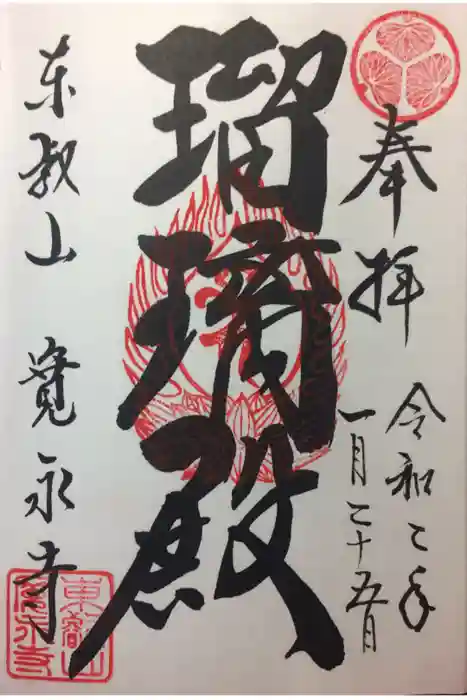 奉拝
令和二年
一月二十五日
瑠璃殿
東叡山 寛永寺
東叡山
寛永寺